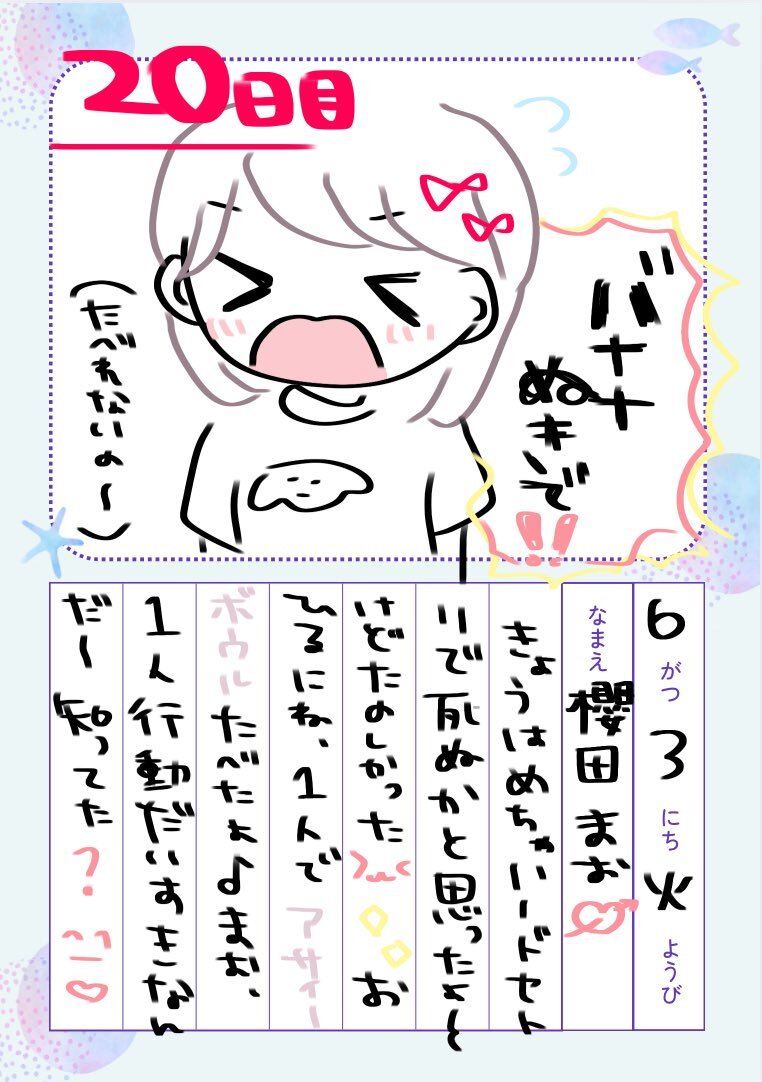 20日目
バナナ
ぬきで
!!
(たべれないの〜)
6がつ3にち火ようび
なまえ 櫻田まお
きょうはめちゃハードセト
リで死ぬかと思ったよ〜
けどたのしかった お
ひるにね、1人でアサイー
ボウルたべたよ♪まお、
1人行動だいすきなん
だー 知ってた?